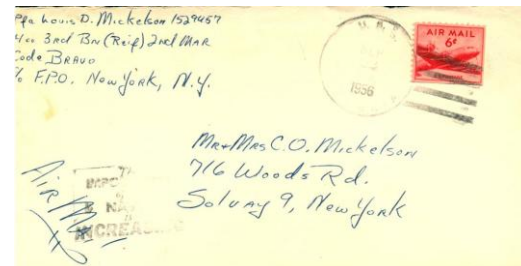 Pfc Louis D. Mickelson 1529457
3rd Bn (Reif) 2nd MAR
Code BRAVO
F.P.O. New York, N.Y.
U.S.
1956
AIR MAIL
6¢
Mr+Mrs C.O. Mickelson
716 Woods Rd.
Solvay 9, New York
Air Mail
INCREASING